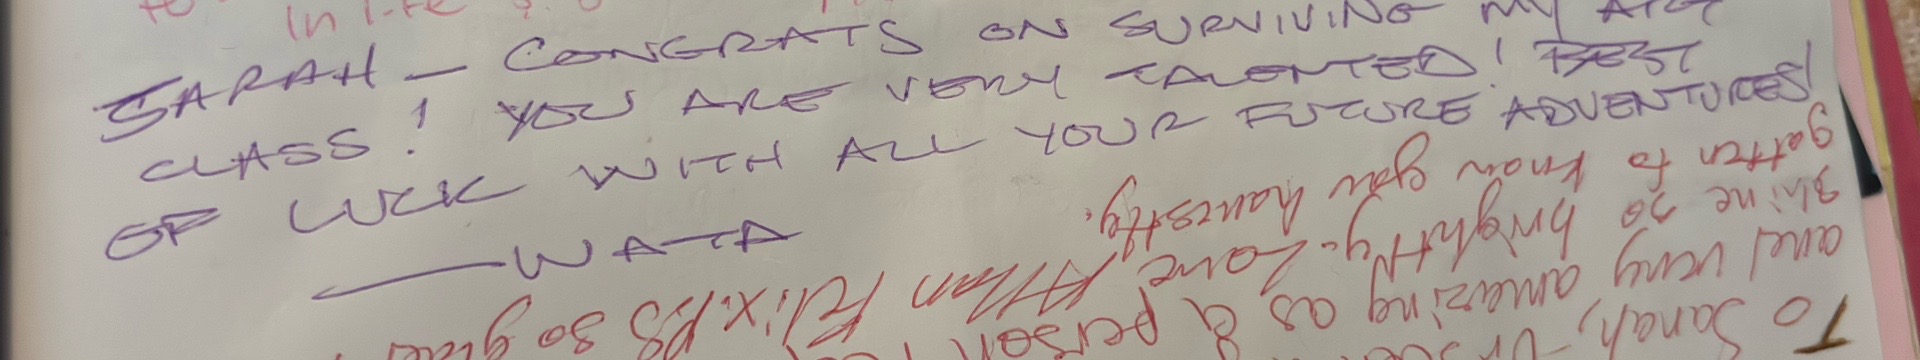 In life
SARAH - CONGRATS ON SURVIVING MY ART
CLASS! YOU ARE VERY TALENTED! BEST
OF LUCK WITH ALL YOUR FUTURE ADVENTURES!
- WATA
To Sarah,
person
and very amazing as a
shine so brightly. Love, Allan Felix. PS so glad
gotten to know you honestly.